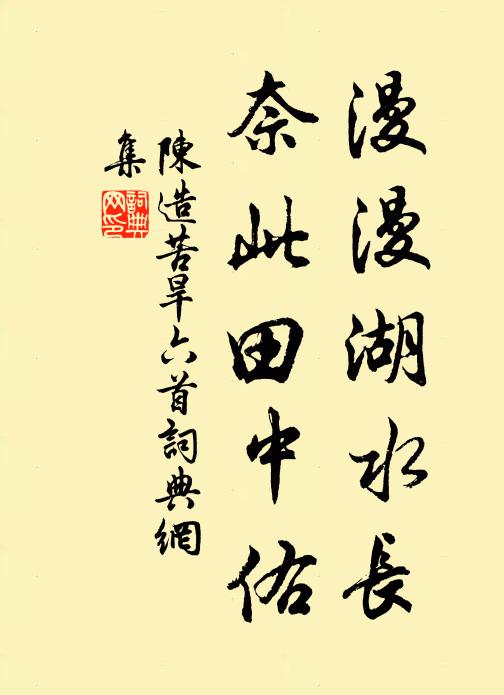 漫漫湖水長
奈此田中佑
陳造苦旱六首詞典網
集
詞典網印